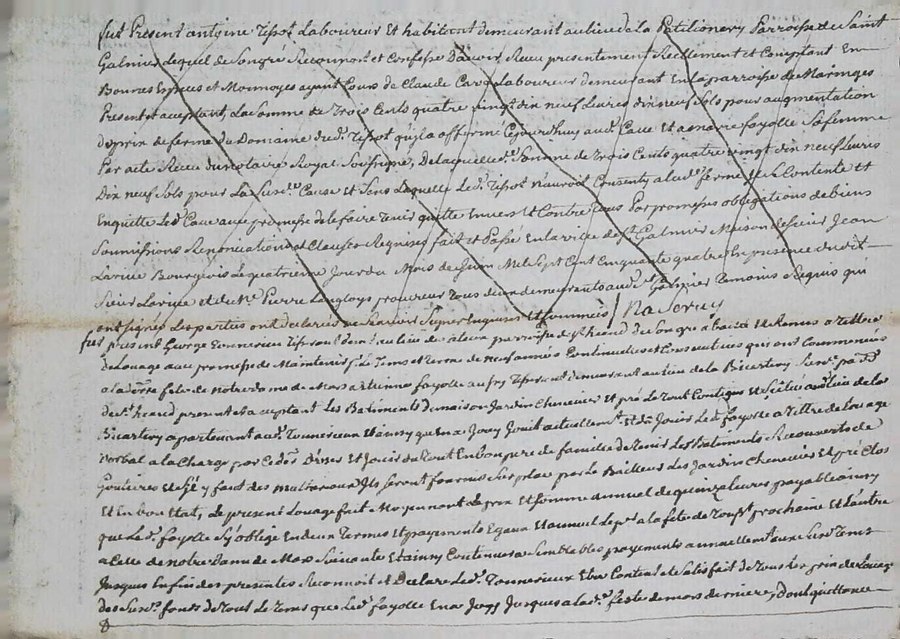 fut Present antoine Tissot Laboureur Et habitant demeurant au lieu de la Patilionery Parroisse de Saint
Galmier Lequel de Son gré Reconnoit et Confesse D'avoir Receu presentement Reellement et Comptant En
Bonnes Especes et Monnoyes ayant Cours de Claude Cave Laboureur demeurant En la parroisse de Maringes
Present et acceptant, La Somme de Trois Cents quatre vingt dix neuf Livres dix neuf Sols pour augmentation
de prix de ferme du Domaine dud. Tissot qu'il a afferme Cejourdhuy aud. Cave Et a marie fayolle Sa femme
Par acte Receu du notaire Royal Soussigné, de laquelle d. Somme de Trois Cents quatre vingt dix neuf Livres
Dix neuf Sols pour La Susd. Cause et Sans Laquelle Led. Tissot n'auroit Consenty a lad. ferme il Se Contente et
Enquitte Led. Cave avec promesse de le faire Tenir quitte Envers et Contre Tous Par promesses obligations de biens
Soumissions Renonciations et Clauses Requises fait et Passé En la ville de St. Galmier Maison de Sieur Jean
Larue Bourgeois Le quatrieme Jour du Mois de Juin Mil Sept Cent Cinquante quatre En presence dudit
Sieur Larue et de Me. Pierre Langloys procureur Tous deux demeurants aud. St. Galmier Temoins Requis qui
ont signés Les parties ont declarés ne Scavoir Signer Enquises Et Sommées
fut present George Tonnerieux demeurant au lieu de parroisse de St. heand de son gre a baillé et Remis a Tittre
de Louage avec promesse de Maintenir Le Tems et Terme de neuf années Continuelles et Consecutives qui ont Commencées
a la derre. fete de notre dame de Mars a Etienne fayolle demeurant au lieu de la Bicartiery Susd. parr.
de St. heand present et acceptant Les Batiments de maison Jardin Chenevier Et pré Le Tout Contigus Et Scitué au d. lieu de la
Bicartiery apartenant aud. Tonnerieux Et ainsy quen a Jouy Jouit actuellemt. Et doit Jouir Led. fayolle a Tittre de Louage
Verbal a la Charge par Ced. d'user Et Jouir du tout En bon pere de famille de Tenir Les Batiments Recouverts de
Goutieres et S'il y faut des Materiaux Ils Seront fournis Sur place par Le Bailleur Les Jardin Chenevier Et pré Clos
Et En bon Etat, Le present Louage fait Moyennant Le prix Et Somme annuel de quinze Livres payable ainsy
que Led. fayolle S'y oblige En deux Termes Et payements Egaux Et annuel Le per. a la fete de Tousst. prochaine Et L'autre
a Celle de notre dame de Mars Suivante Et ainsy Continuera Semblables payements annuellement aux Susd. Tems
Jusques En fin des presentes Reconnoit et Declare Led. Tonnerieux Etre Content et Satisfait de Tous Les prix de Louage
des Susd. fonds de Tout Le Tems que Led. fayolle En a Jouy Jusques a lad. feste de mars derniere, dont quittance